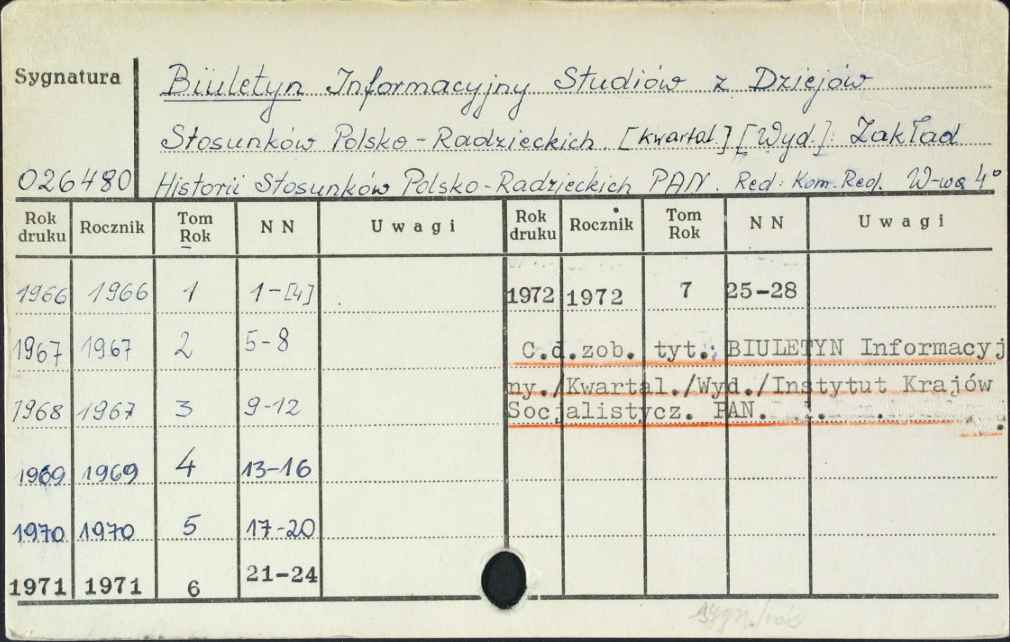 Sygnatura
Biuletyn Informacyjny Studiów z Dziejów
Stosunków Polsko-Radzieckich. [Kwartal.] [Wyd.]: Zakład
026480 Historii Stosunków Polsko-Radzieckich PAN. Red: Kom. Red. W-wa 4°
Rok druku Rocznik Tom Rok NN Uwagi Rok druku Rocznik Tom Rok NN Uwagi
1966 1966 1 1-[4] 1972 1972 7 25-28
1967 1967 2 5-8 C.d.zob. tyt.: BIULETYN Informacyj
ny./Kwartal./Wyd./Instytut Krajów
1968 1967 3 9-12 Socjalistycz. PAN.
1969 1969 4 13-16
1970 1970 5 17-20
1971 1971 6 21-24